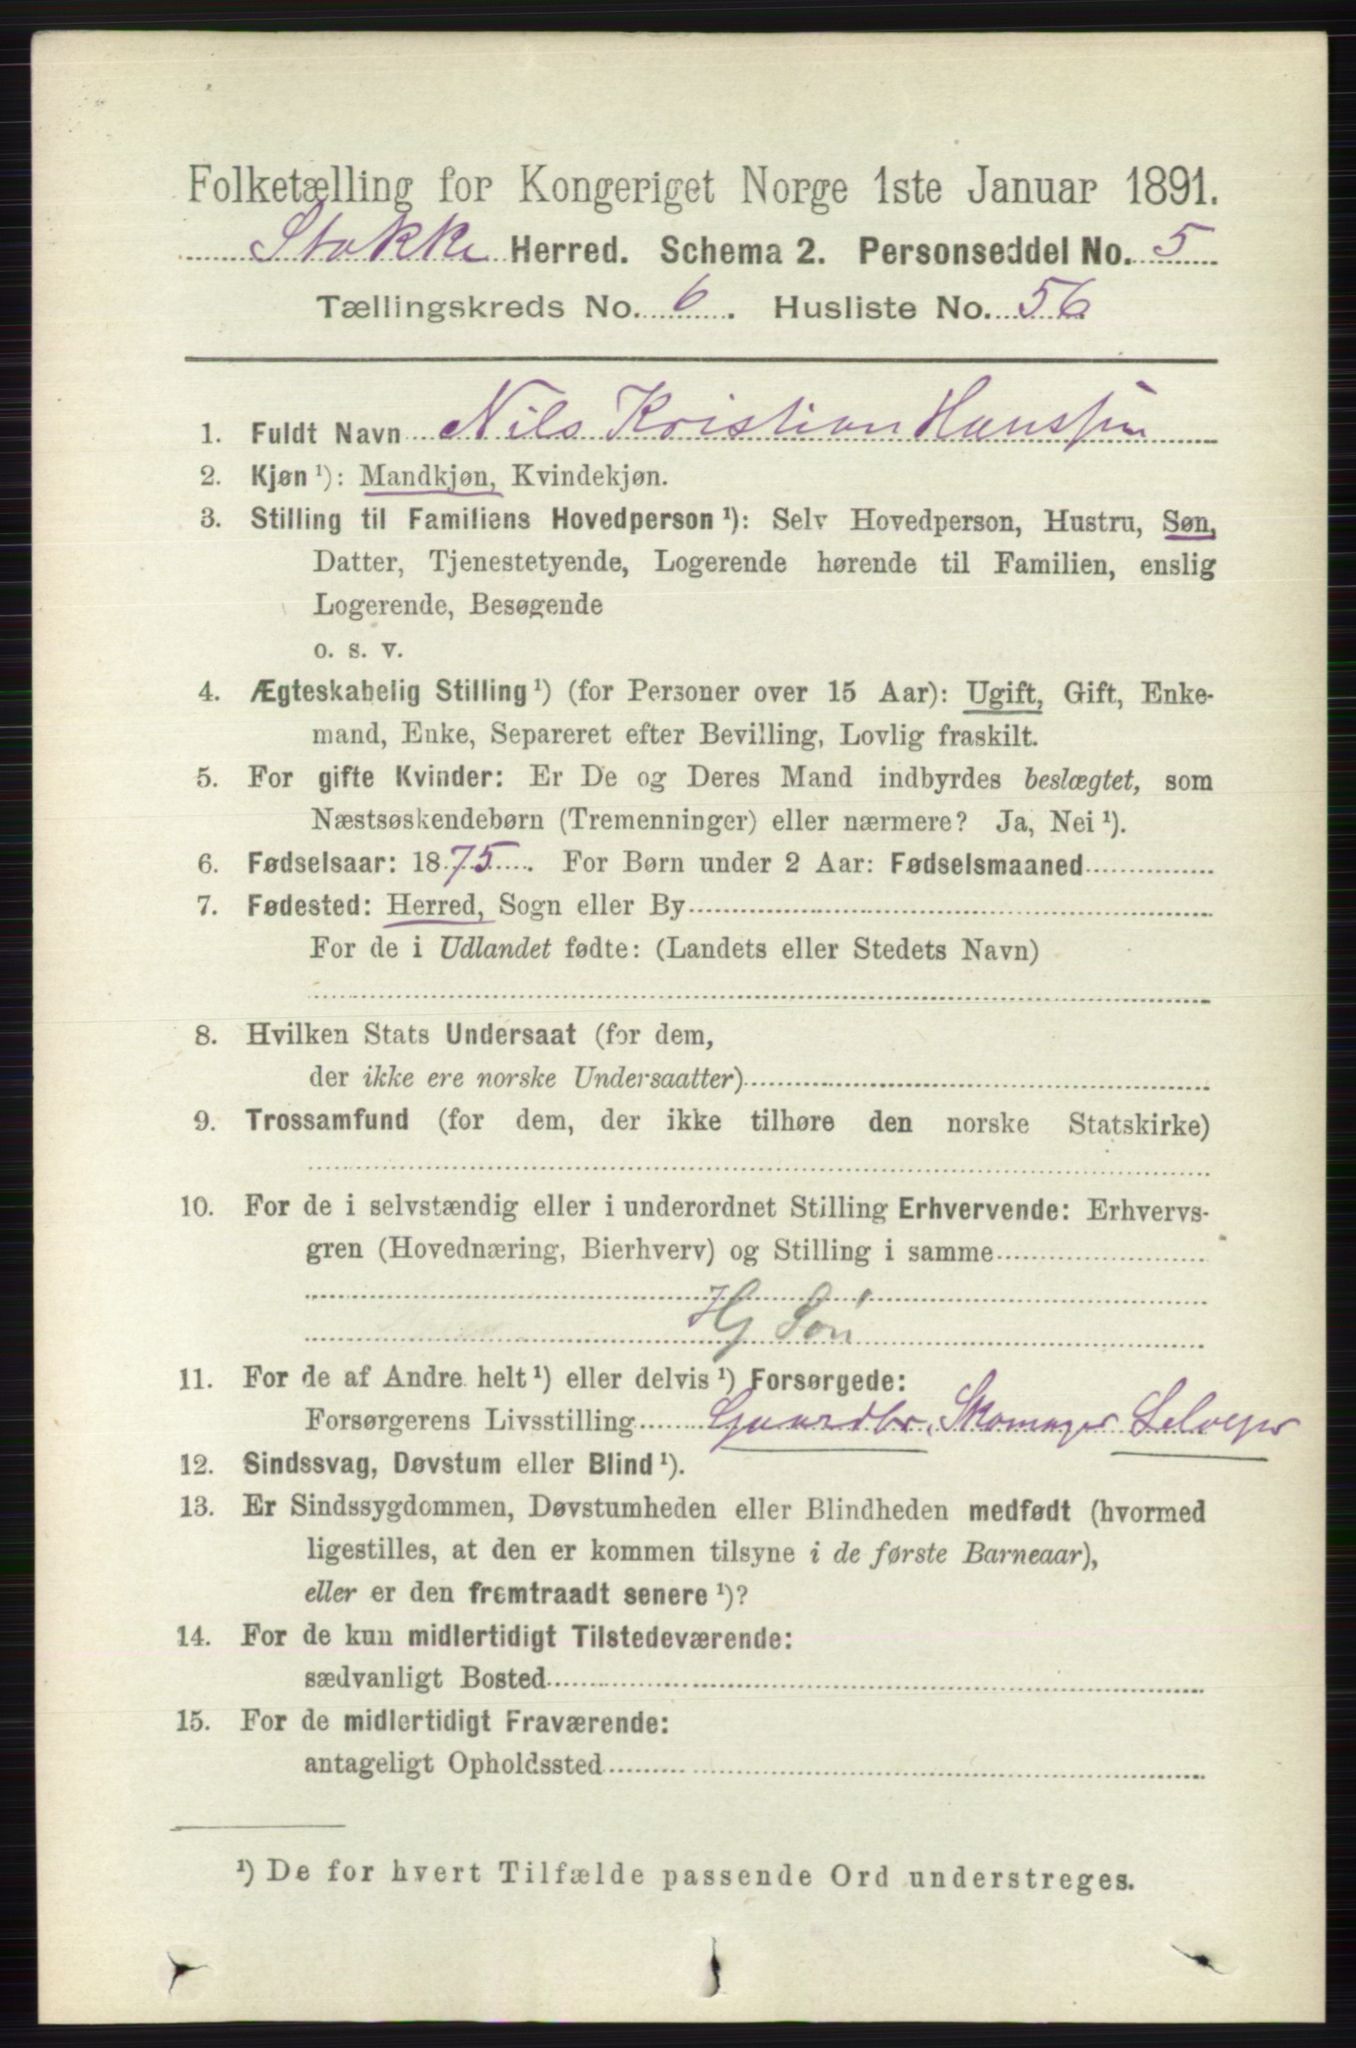 Folketælling for Kongeriget Norge 1ste Januar 1891.
Stokke Herred. Schema 2. Personseddel No. 5
Tællingskreds No. 6. Husliste No. 56
1. Fuldt Navn Nils Kristian Hanssen
2. Kjøn ¹): Mandkjøn, Kvindekjøn.
3. Stilling til Familiens Hovedperson ¹): Selv Hovedperson, Hustru, Søn,
Datter, Tjenestetyende, Logerende hørende til Familien, enslig
Logerende, Besøgende
o. s. v.
4. Ægteskabelig Stilling ¹) (for Personer over 15 Aar): Ugift, Gift, Enke-
mand, Enke, Separeret efter Bevilling, Lovlig fraskilt.
5. For gifte Kvinder: Er De og Deres Mand indbyrdes beslægtet, som
Næstsøskendebørn (Tremenninger) eller nærmere? Ja, Nei ¹).
6. Fødselsaar: 1875. For Børn under 2 Aar: Fødselsmaaned
7. Fødested: Herred, Sogn eller By
For de i Udlandet fødte: (Landets eller Stedets Navn)
8. Hvilken Stats Undersaat (for dem,
der ikke ere norske Undersaatter)
9. Trossamfund (for dem, der ikke tilhøre den norske Statskirke)
10. For de i selvstændig eller i underordnet Stilling Erhvervende: Erhvervs-
gren (Hovednæring, Bierhverv) og Stilling i samme
Hj Søn
11. For de af Andre helt ¹) eller delvis ¹) Forsørgede:
Forsørgerens Livsstilling Gaardbr, Skomager Selvejer
12. Sindssvag, Døvstum eller Blind ¹).
13. Er Sindssygdommen, Døvstumheden eller Blindheden medfødt (hvormed
ligestilles, at den er kommen tilsyne i de første Barneaar),
eller er den fremtraadt senere ¹)?
14. For de kun midlertidigt Tilstedeværende:
sædvanligt Bosted
15. For de midlertidigt Fraværende:
antageligt Opholdssted
¹) De for hvert Tilfælde passende Ord understreges.